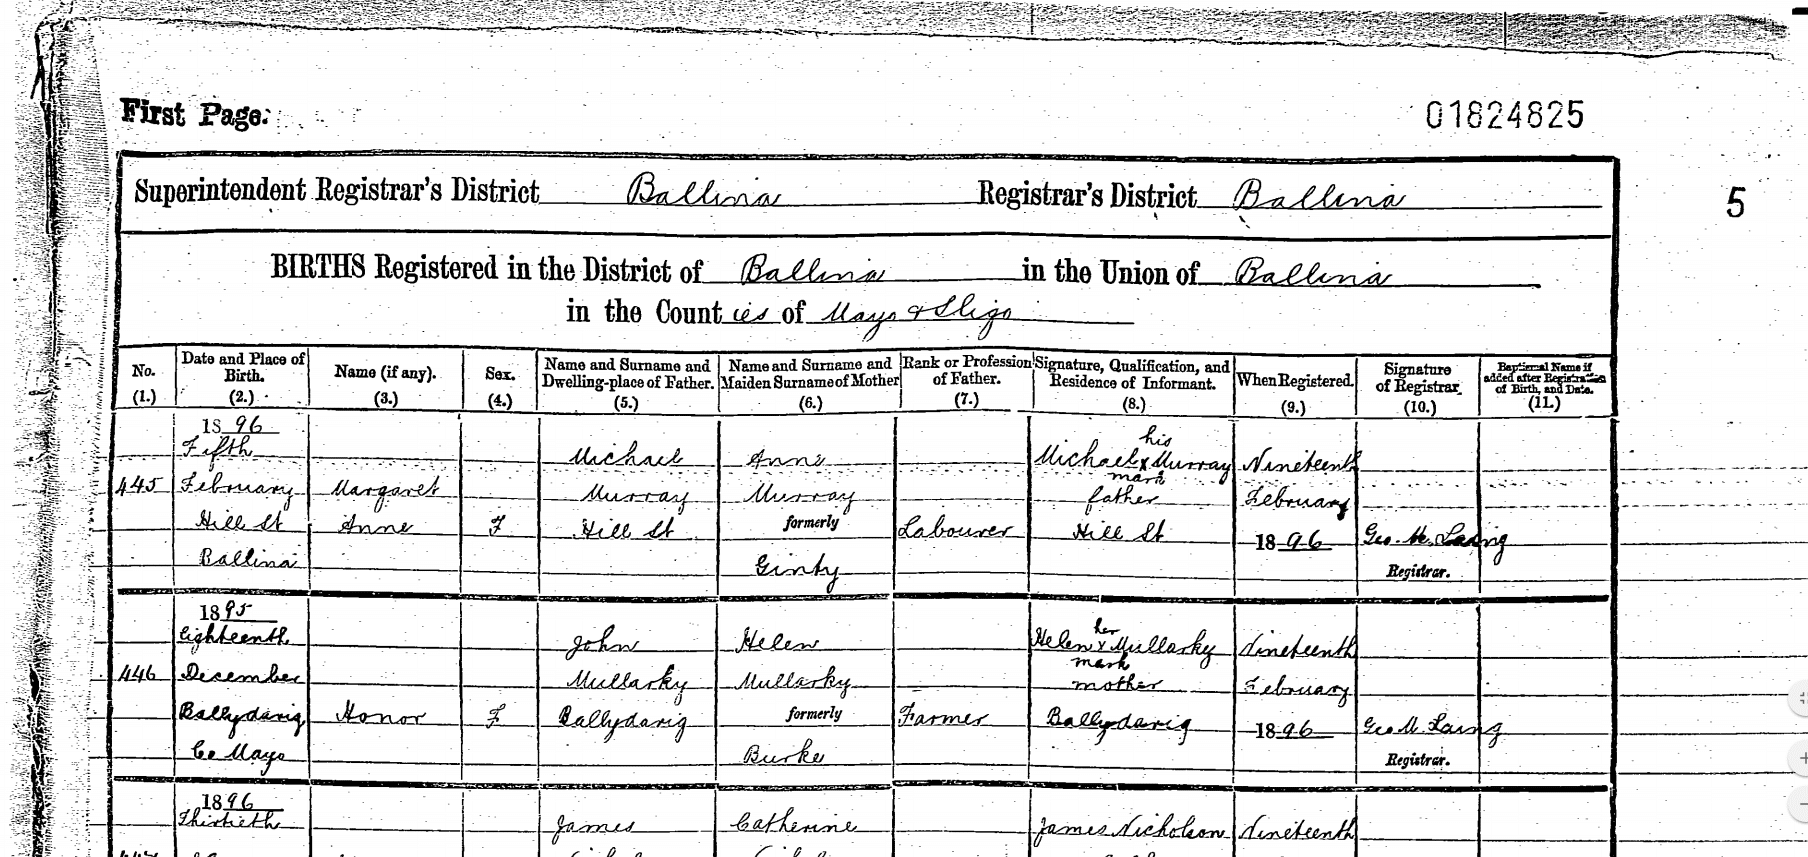 First Page:
01824825
Superintendent Registrar's District Ballina Registrar's District Ballina
5
BIRTHS Registered in the District of Ballina in the Union of Ballina
in the Counties of Mayo & Sligo
No. (1.)
Date and Place of Birth. (2.)
Name (if any). (3.)
Sex. (4.)
Name and Surname and Dwelling-place of Father. (5.)
Name and Surname and Maiden Surname of Mother (6.)
Rank or Profession of Father. (7.)
Signature, Qualification, and Residence of Informant. (8.)
When Registered. (9.)
Signature of Registrar. (10.)
Baptismal Name if added after Registration of Birth, and Date. (11.)
1896
Fifth Michael Anne his
Michael x Murray Nineteenth
mark
445 February Margaret Murray Murray father February
Hill St Anne F Hill St formerly Labourer Hill St 1896 Geo. M. Laing
Ballina Ginty Registrar.
1895
Eighteenth John Helen her
Helen x Mullarky Nineteenth
mark
446 December Mullarky Mullarky mother February
Ballydavig Honor F Ballydavig formerly Farmer Ballydavig 1896 Geo M. Laing
Co Mayo Burke Registrar.
1896
Thirtieth James Catherine James Nicholson Nineteenth